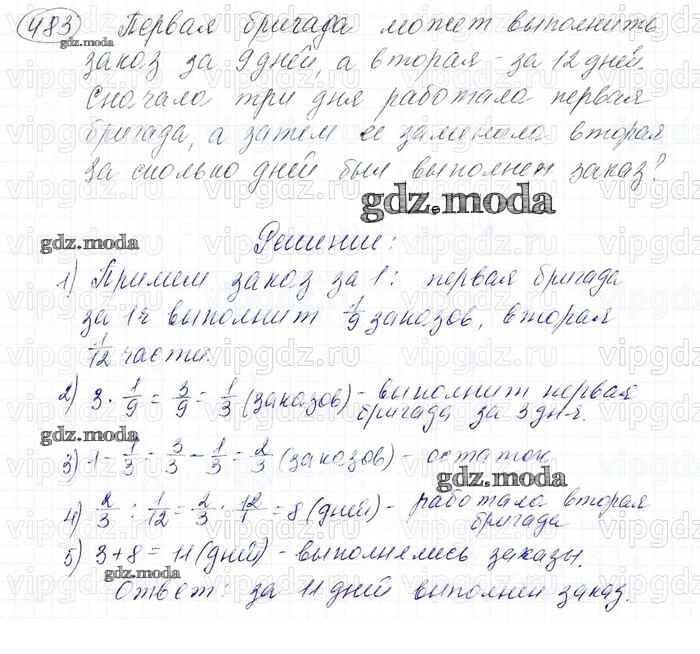 483 Первая бригада может выполнить
заказ за 9 дней, а вторая - за 12 дней.
Сначала три дня работала первая
бригада, а затем ее заменила вторая
За сколько дней был выполнен заказ?
gdz.moda
gdz.moda
Решение:
1) Примем заказ за 1: первая бригада
за 1ч выполнит 1/9 заказов, вторая
1/12 части.
2) 3 · 1/9 = 3/9 = 1/3 (заказов) - выполнит первая
бригада за 3 дня.
3) 1 - 1/3 = 3/3 - 1/3 = 2/3 (заказов) - остаток
gdz.moda
4) 2/3 : 1/12 = 2/3 · 12/1 = 8 (дней) - работала вторая
бригада
5) 3+8 = 11 (дней) - выполнялись заказы.
Ответ: за 11 дней выполнен заказ.
gdz.moda
gdz.moda
gdz.moda
vipgdz.ru